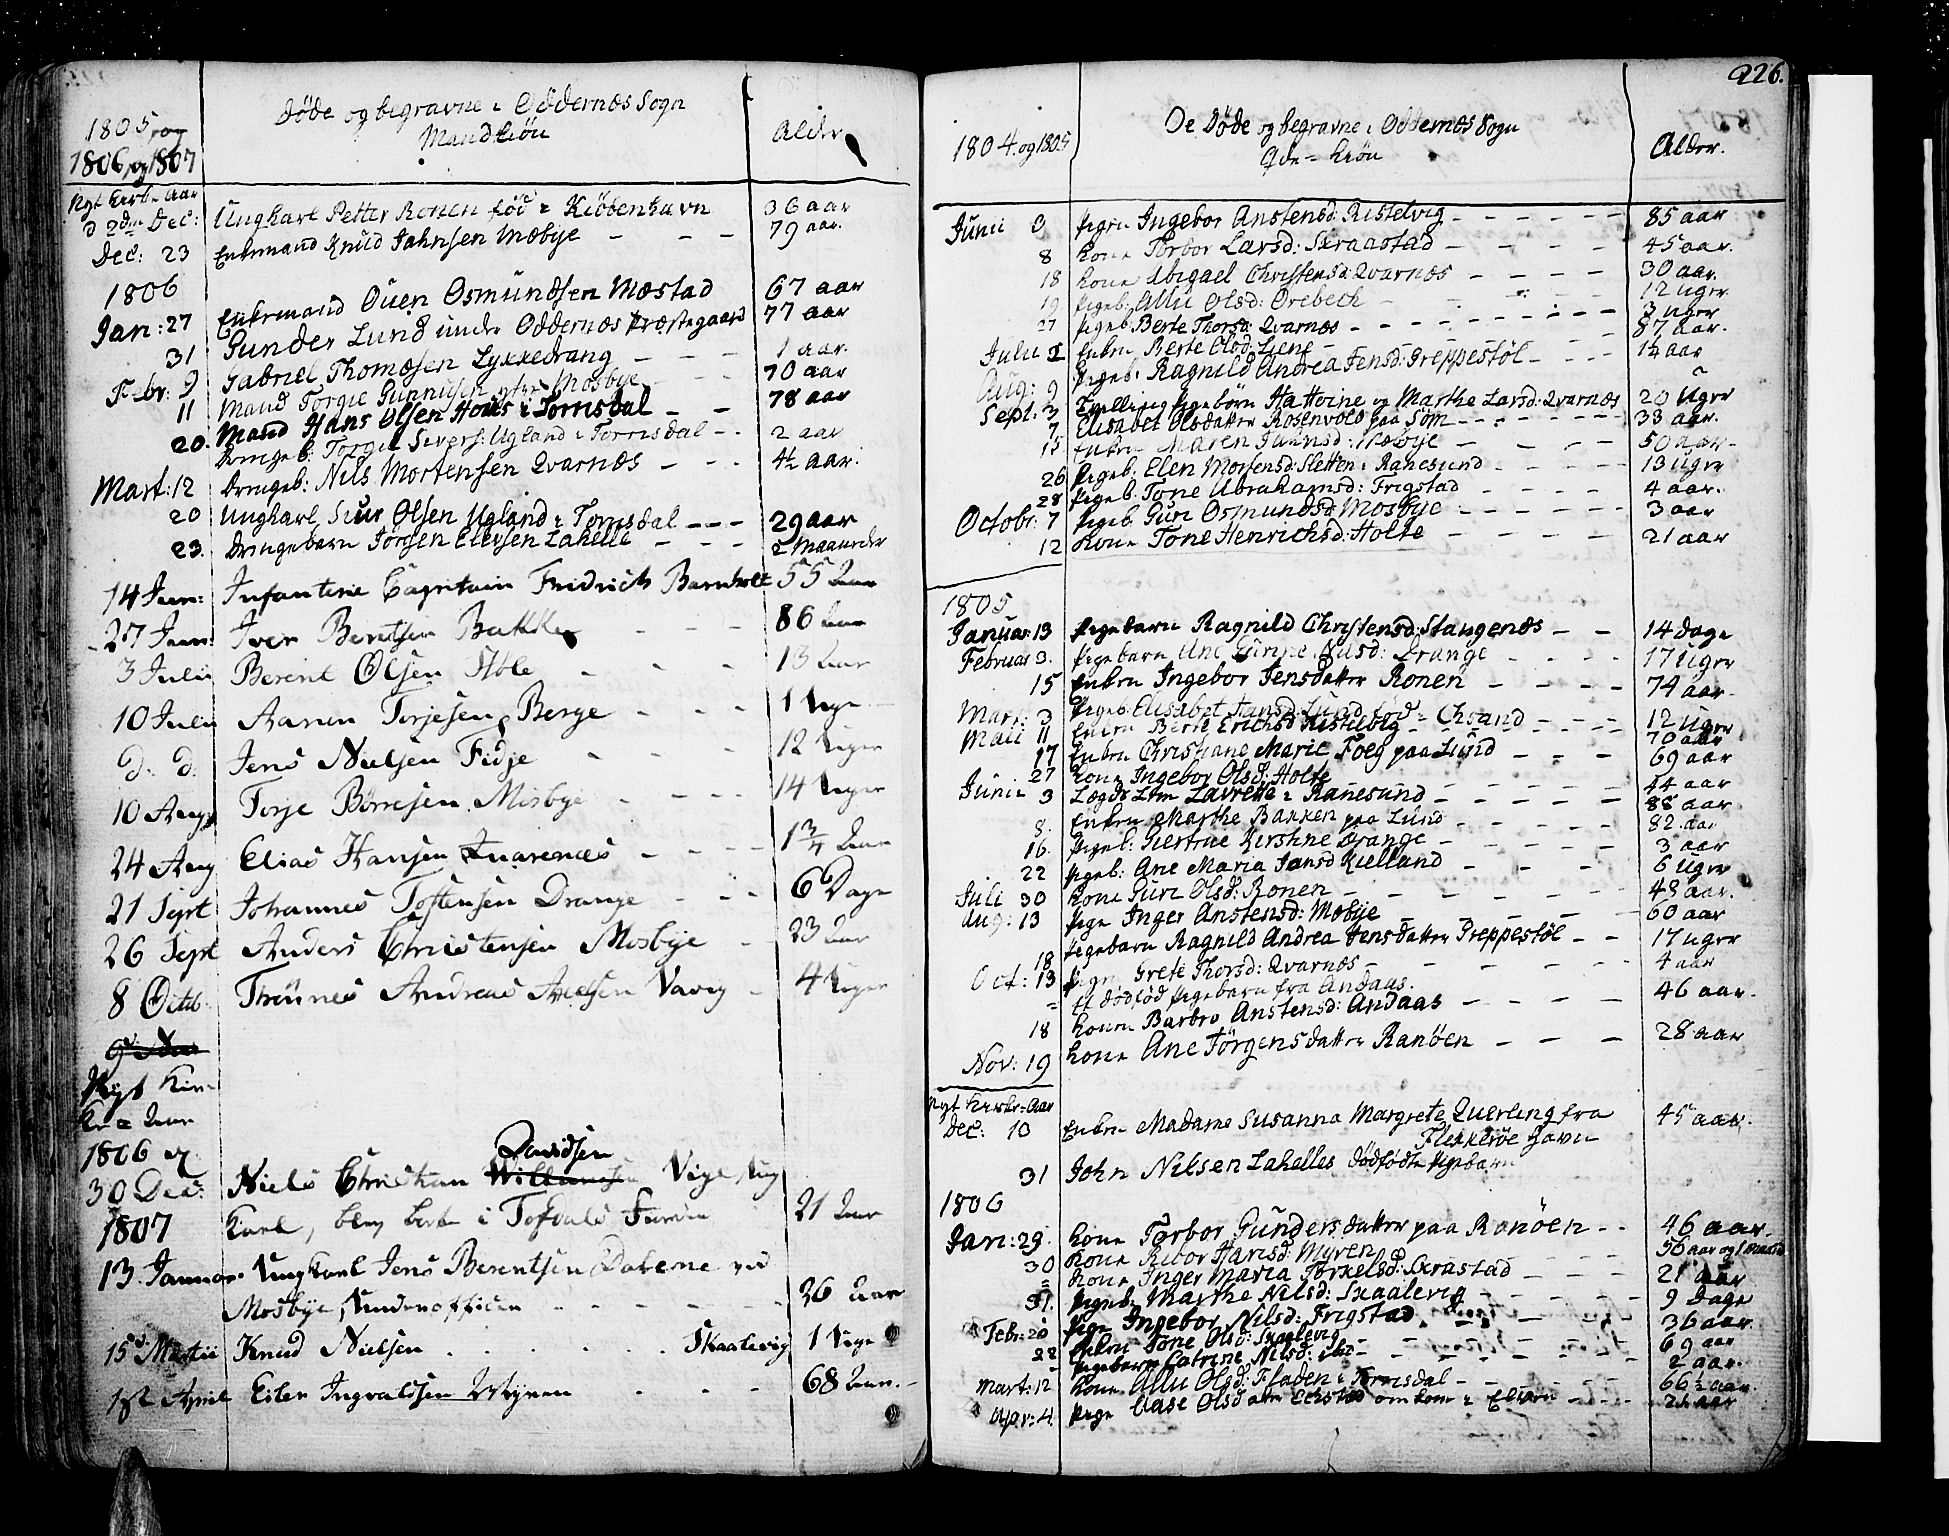 1805, og
1806, og 1807
Døde og begravne i Oddernæs Sogn
Mandkiøn
Alder
Nyt Kirke-Aar
d 2den Dec: Ungkarl Petter Ronen fød i Kiøbenhavn 36 aar
Dec: 23 Enkemand Knud Jahnsen Mæbye - - - 79 aar.
1806
Jan: 27 Enkemand Ouen Osmundsen Mæstad 67 aar
31 Gunder Lund under Oddernæs Præstegaard 77 aar
Febr: 9 Gabriel Thomæsen Lykkedrang - - - 1 aar.
11 Mand Torgie Gunnusen Mosbye 70 aar
20. Mand Hans Olsen Hous i Torrisdal - - 78 aar
Drengeb: Torgil Sivers: Ugland i Torrisdal - . 2 aar
Mart: 12 Drengeb: Nils Mortensen Qvarnæs - - - 4½ aar.
20 Ungkarl Siur Olsen Ugland i Torrisdal - - - 29 aar
23. Drengebarn Jørgen Elevsen Lahelle - - - 2 Maaneder
14 Juni: Infanterie Capitain Fridrich Barnholt 55 Aar
27 Juni: Iver Berntsen Bakken - - - 86 Aar
3 Julii Berent Olsen Støle - - - 13 Aar
10 Julii Aanen Torjesen Berge - - - 1 Uge
d. d. Jens Nielsen Fidje - - - 12 Uger
10 Aug: Torje Børresen Mosbye - - - 14 Uger
24 Aug Elias Hansen Quarenæs - - - 1¾ Aar
21 Sept Johannes Toftensen Drange - - - 6 Dage
26 Sept Anders Christensen Mosbye - - 23 Aar
8 Octb. Thrines Andreas Axelsen Vaavig - 4 Uger
Nyt Kir-
ke-Aar
1806 d
Davidsen
30 Dec: Niels Christian Willumsen Vige, Ung
1807 Karl, blev borte i Tofdals Furen 21 Aar
13 Januar. Ungkarl Jens Berentsen Daberne ved
Mosbye, Underofficer - - - - 26 Aar
15d Martii Knud Nielsen . . . . . . Skaalevig 1 Uge
1st April Eilev Ingvaldsen Myren - - - 68 Aar. -
226.
1804. og 1805
De Døde og begravne i Oddernæs Sogn
Qde-kiøn
Alder.
Junii 3 Pigen Ingebor Anstensd: Ristelvig - - - - 85 aar
8 Kone Torbor Larsd: Skraastad - - - - 45 aar.
18 Kone Abigael Christensd: Qvarnæs - - - - 30 aar.
19 Pigeb: Allu Olsd: Orebech - - - - 12 Uger
27 Pigeb. Berte Thorsd: Qvarnæs - - - - 3 Uger
Julii 2 Enken Berte Olsd: Liene - - - - 87 aar.
Aug: 9 Pigeb: Ragnild Andrea Jensd: Preppestøl - - - - 14 aar
Sept: 3 Tvilling Pigebørn Hattoine og Marthe Larsd: Qvarnæs 20 Uger
7 Elisabet Olsdatter Rosenvold paa Søm - - - - 33 aar.
15 Enken Maren Jahnsd: Mæbye - - - - 50 aar.
26 Pigeb: Elen Morsensd: Sletten i Ranesund - - - - 13 Uger
28 Pigeb. Tone Abrahamsd: Frigstad - - - - 4 aar.
Octobr: 7 Pigeb. Guri Osmundsd: Mosbye - - - - 3 aar
12 Kone Tone Henrichsd: Holte - - - - 21 aar
1805
Januar: 13 Pigebarn Ragnild Christensd: Stangenæs - - 14 Dage
Februar 3. Pigebarn Ane Nilsd: Drange - - - - 17 Uger
15 Enken Ingebor Jensdatter Ronen - - - - 74 aar.
Mart: 3 Pigeb: Elisabet Jansd: Lund fød i Chsand - - - - 12 Uger
Maii 11 Enken Berte Erichsd: Ristelvig - - - - 70 aar
17 Enken Christiane Marie Foeg paa Lund - - - 69 aar
27 Kone Ingebor Olsd: Holte 44 aar
Junii 3 Lægds Lem Lavrette i Ranesund - - - - 88 aar
8. Enken Marthe Bakken paa Lund - - - - 82. aar
16. Pigeb: Giertrue Kirstine Drange - - - - 3 aar
22 Pigeb: Ane Maria Jansd Kielland - - - - 6 Uger
Juli 30 Kone Guri Olsd: Ronen - - - - 48 aar.
Aug: 13 Pige Inger Anstensd: Mæbye - - - - 60 aar
18 Pigebarn Ragnild Andrea Jensdatter Preppestøl - - 17 uger
Oct: 13 Pigen Grete Thorsd: Qvarnæs - - - - 4 aar
= Et dødfød Pigebarn fra Andaas.
18 Konen Barbro Anstensd: Andaas - - - - 46 aar.
Nov: 19 Kone Ane Jørgensdatter Ranøen - - - 28 aar
Nyt Kirke-Aar
Dec: 10 Enken Madame Susanna Margrete Querling fra 45 aar.
Flekkerøe Havn
31 John Nilsen Lahelles dødfødte Pigebarn
1806
Jan: 29. Kone Torbor Gundersdatter paa Ronøen - - 46 aar.
30 Kone Ribor Hansd: Myren 50 aar og 1 Maaned
= Kone Inger Maria Torkelsd: Skrastad - - - - 21 aar
31. Pigeb: Marthe Nilsd: Skaalevig - - - - 9 Dage
Febr: 20 Pige Ingebor Nilsd: Frigstad - - - 36 aar.
22 Enken Tone Olsd: Skaalevig - - - - 69 aar
- Pigebarn Catrine Nilsd: ibd - - - - 2 aar.
Mart: 12 Kone Allu Olsd: Fladen i Torrisdal - - - - 66½ aar.
Apr: 4 Pige Aase Olsdatter Eeikstad omkom i Elven - - - - 21 aar